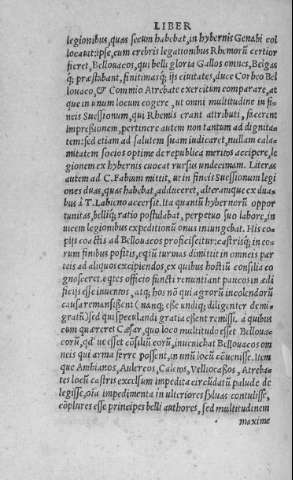 LIBER
legionibus, quas secum habebat, in hybernis Genabi col
locauit: ipse, cum crebris legationibus Rhemorũ certior
fieret, Bellouacos, qui belli gloria Gallos omnes, Belgas
q; præstabant, finitimasq; ijs ciuitates, duce Corbeo Bel
louaco, & Commio Atrebate exercitum comparare, at
que in unum locum cogere, ut omni multitudine in fi=
neis Suessionum, qui Rhemis erant attributi, facerent
impreßionem, pertinere autem non tantum ad dignita=
tem: sed etiam ad salutem suam iudicaret, nullam cala=
mitatem socios optime de republica meritos accipere, le
gionem ex hybernis euocat rursus undecimam. Literas
autem ad C. Fabium mittit, ut in fineis Suessionum legi
ones duas, quas habebat, adduceret, alteramque ex dua=
bus à T. Labieno accersit. Ita quantũ hybernorũ oppor
tunitas, belliq; ratio postulabat, perpetuo suo labore, in
uicem legionibus expeditionũ onus iniungebat. His co=
pijs coactis ad Bellouacos proficiscitur: castrisq; in eo=
rum finibus positis, eqitũ turmas dimittit in omneis par
teis ad aliquos excipiendos, ex quibus hostiũ consilia co
gnosceret. eqtes officio functi renuntiant paucos in ædi
ficijs esse inuentos, atq; hos nõ qui agrorũ incolendorũ
causa remansißent (nanq; eße undiq; diligenter demi=
gratũ) sed qui speculandi gratia eßent remissi. a quibus
cum quæreret Cæsar, quo loco multitudo esset Bellouа=
corũ, qd'ue esset cõsiliũ eorũ, inueniebat Bellouacos om
neis qui arma ferre possent, in unũ locũ cõuenisse. Item
que Ambianos, Aulercos, Caletos, Velliocaßos, Atreba=
tes locũ castris excelsum impedita circũdatũ palude de
legisse, oĩa impedimenta in ulteriores syluas contulisse,
cõplures esse principes belli authores, sed multitudinem
maxime